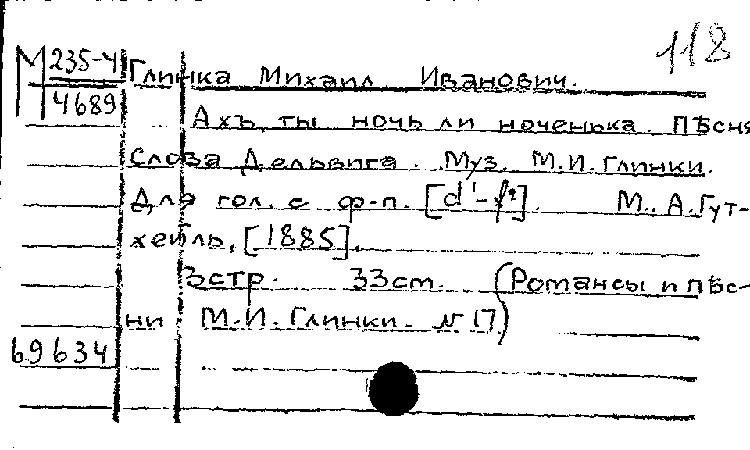 118
М 235-4 Глинка Михаил Иванович.
4689 Ахъ, ты ночь ли ноченька. Пѣсня
Слова Дельвига. Муз. М.И. Глинки.
Для гол. с ф-п. [d'-f²]. М., А. Гут-
хейль, [1885].
3 стр. 33 см. (Романсы и пѣс-
ни М.И. Глинки. № 17)
69634